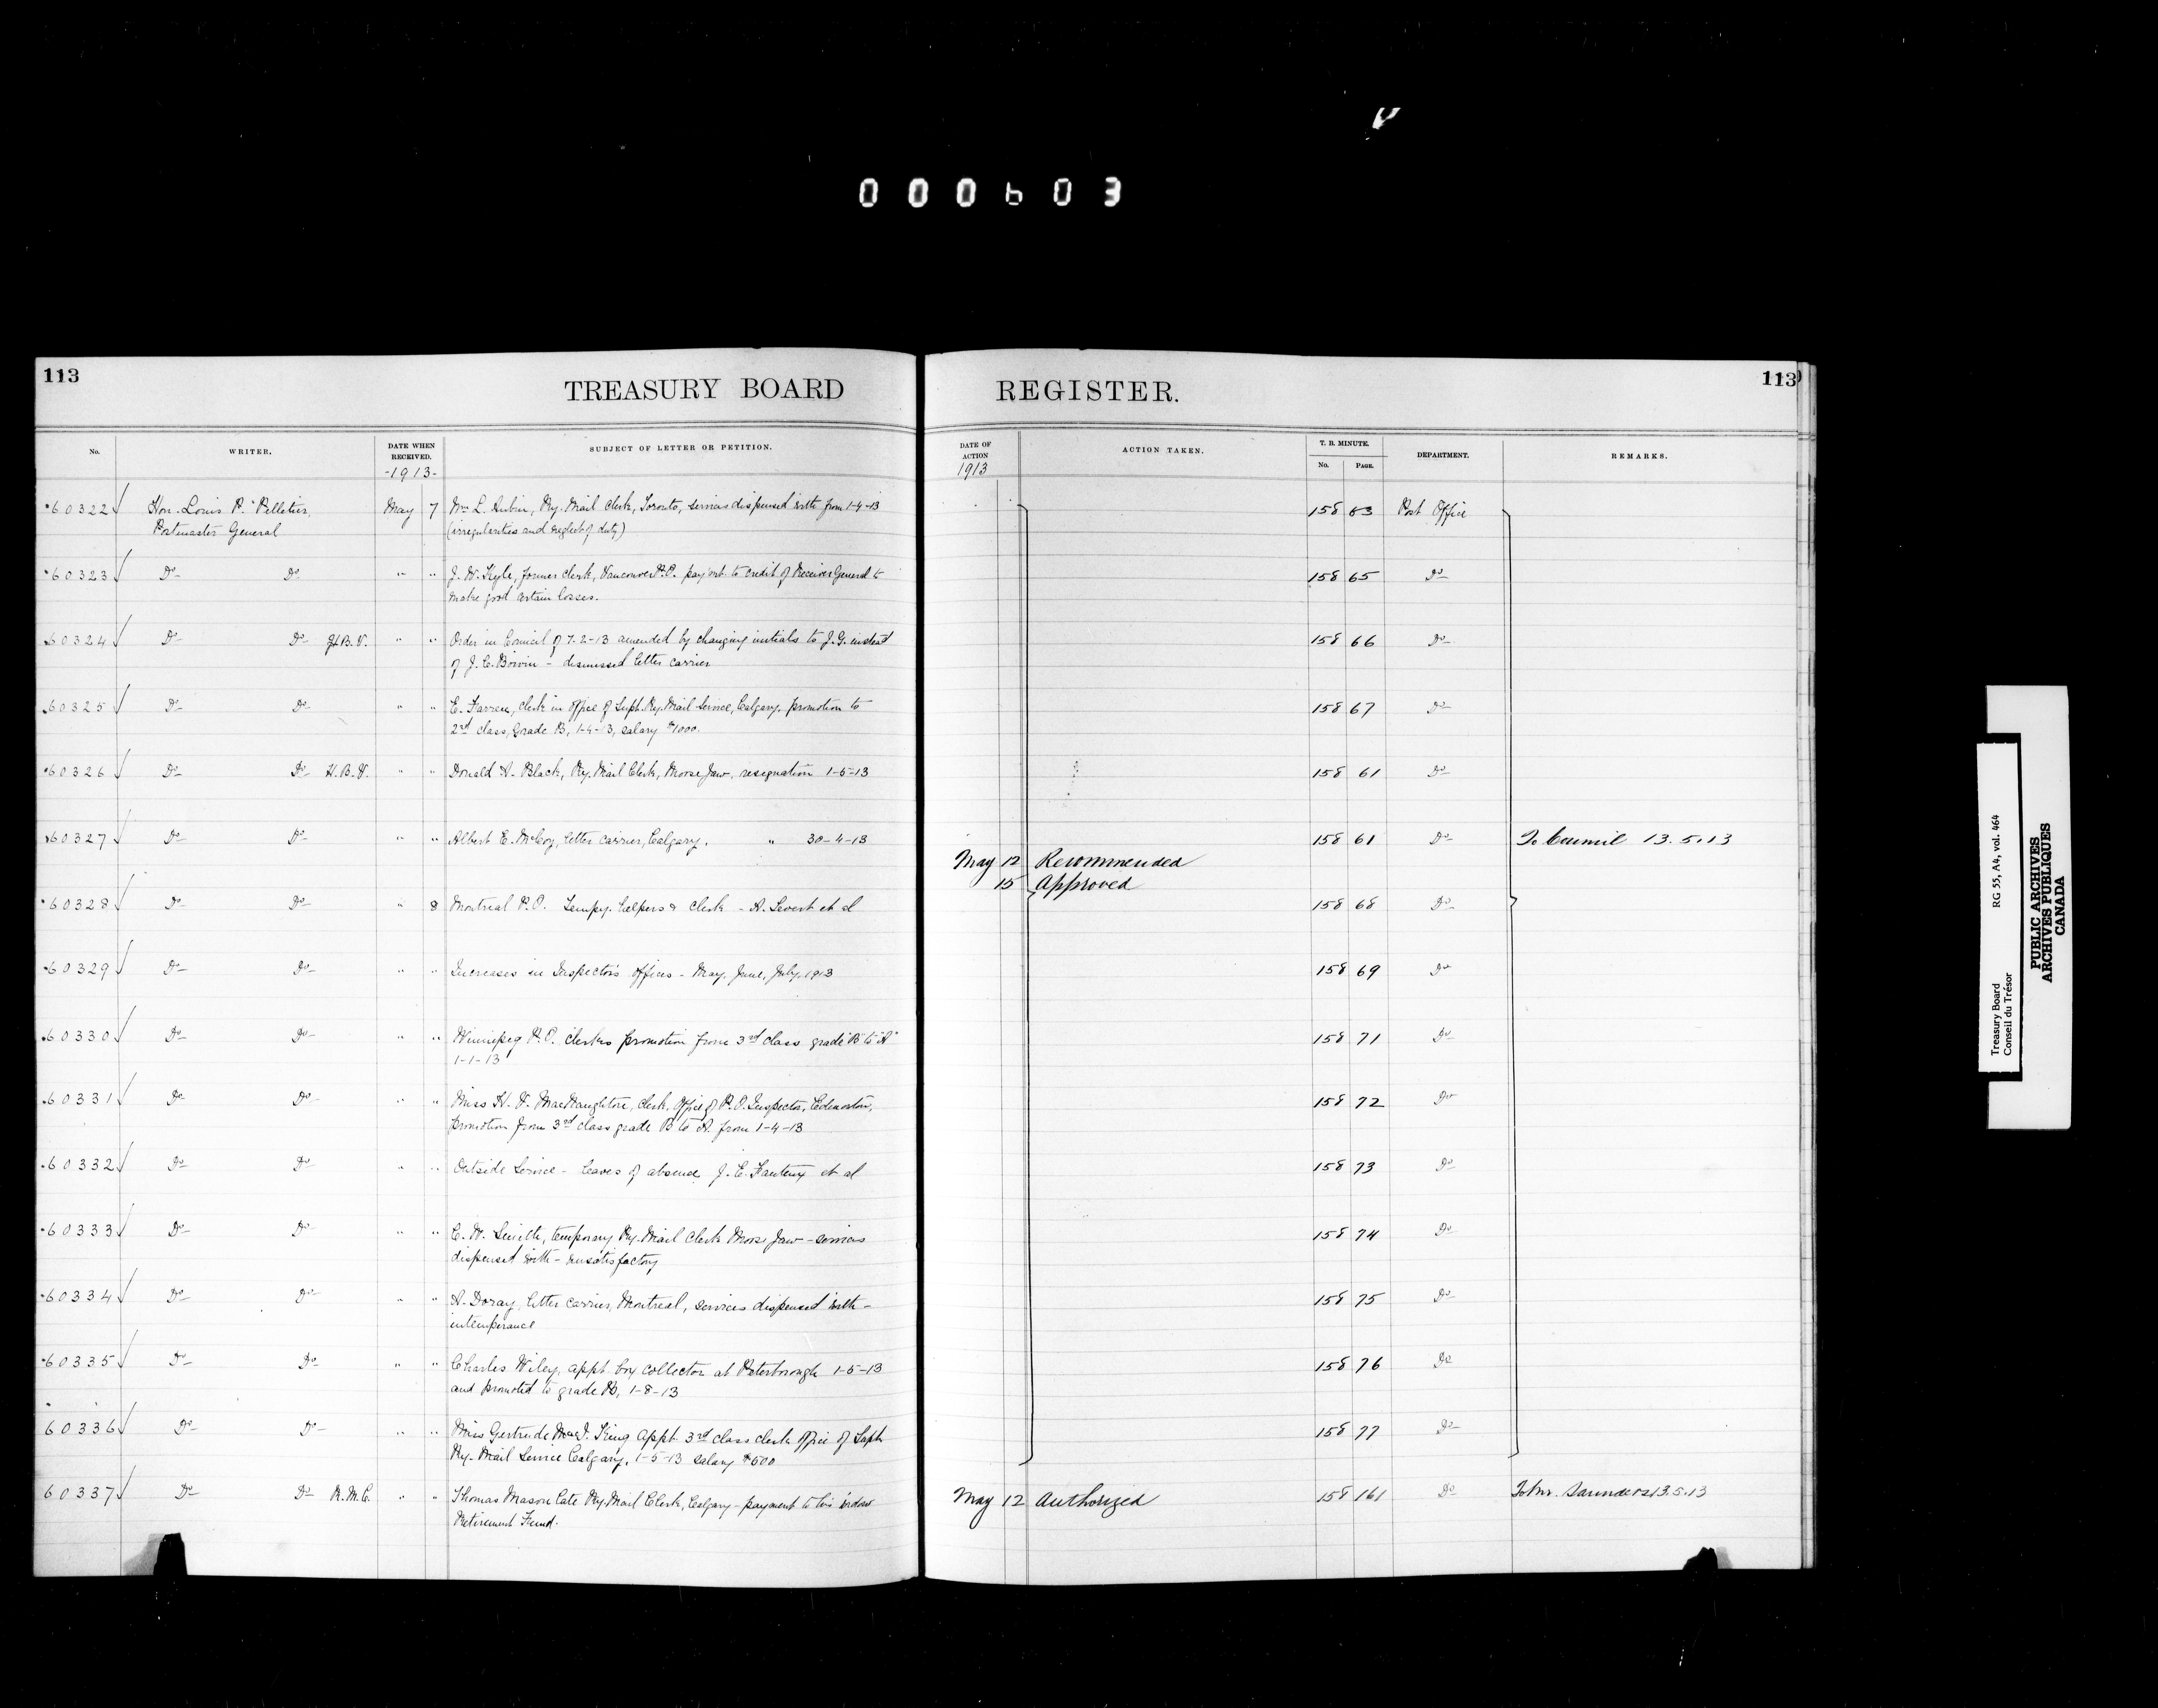 000603
113
TREASURY BOARD
REGISTER.
113
No.
WRITER.
DATE WHEN RECEIVED.
-1913-
SUBJECT OF LETTER OR PETITION.
DATE OF ACTION
1913
ACTION TAKEN.
T. B. MINUTE.
No.
PAGE.
DEPARTMENT.
REMARKS.
60322 Hon. Louis P. Pelletier, May 7 Wm L. Aubin, Ry. Mail Clerk, Toronto, services dispensed with from 1-4-13 158 63 Post Office
Postmaster General (irregularities and neglect of duty)
60323 Do Do " " J. W. Kyle, former clerk, Vancouver P.O. paym't to credit of Receiver General to 158 65 Do
make good certain losses.
60324 Do Do H.B.V. " " Order in Council of 7-2-13 amended by changing initials to J.G. instead 158 66 Do
of J. C. Boivin - dismissed letter carrier
60325 Do Do " " E. Farren, clerk in office of Supt. Ry. Mail Service, Calgary. promotion to 158 67 Do
2nd class, Grade B, 1-4-13, salary $1000.
60326 Do Do H.B.V. " " Donald A. Black, Ry. Mail Clerk, Moose Jaw, resignation 1-5-13 158 61 Do
60327 Do Do " " Albert E. McCoy, letter carrier, Calgary. " 30-4-13 158 61 Do To Council 13.5.13
May 12 Recommended
15 Approved
60328 Do Do " 8 Montreal P.O. Tempy. helpers & clerk - A. Levert et al 158 68 Do
60329 Do Do " " Increases in Inspectors offices - May, June, July, 1913 158 69 Do
60330 Do Do " " Winnipeg P.O. clerks promotion from 3rd class grade "B" to "A" 158 71 Do
1-1-13
60331 Do Do " " Miss H. V. MacNaughton, clerk, Office of P.O. Inspector, Edmonton, 158 72 Do
promotion from 3rd class grade B to A. from 1-4-13
60332 Do Do " " Outside Service - leaves of absence J. E. Fauteux et al 158 73 Do
60333 Do Do " " C. W. Smith, temporary Ry. Mail Clerk Moose Jaw - services 158 74 Do
dispensed with - unsatisfactory
60334 Do Do " " A. Doray, letter carrier, Montreal, services dispensed with - 158 75 Do
intemperance
60335 Do Do " " Charles Wiley, appt. box collector at Peterborough 1-5-13 158 76 Do
and promoted to grade B, 1-8-13
60336 Do Do " " Miss Gertrude King appt. 3rd class clerk office of Supt. 158 77 Do
Ry. Mail Service Calgary, 1-5-13 salary $600
60337 Do Do R.M.C. " " Thomas Mason Cate Ry. Mail Clerk, Calgary - payment to his widow May 12 Authorized 158 161 Do To Mr. Saunders 13.5.13
Retirement Fund.
Treasury Board
Conseil du Trésor
RG 55, A4, vol. 464
PUBLIC ARCHIVES
ARCHIVES PUBLIQUES
CANADA